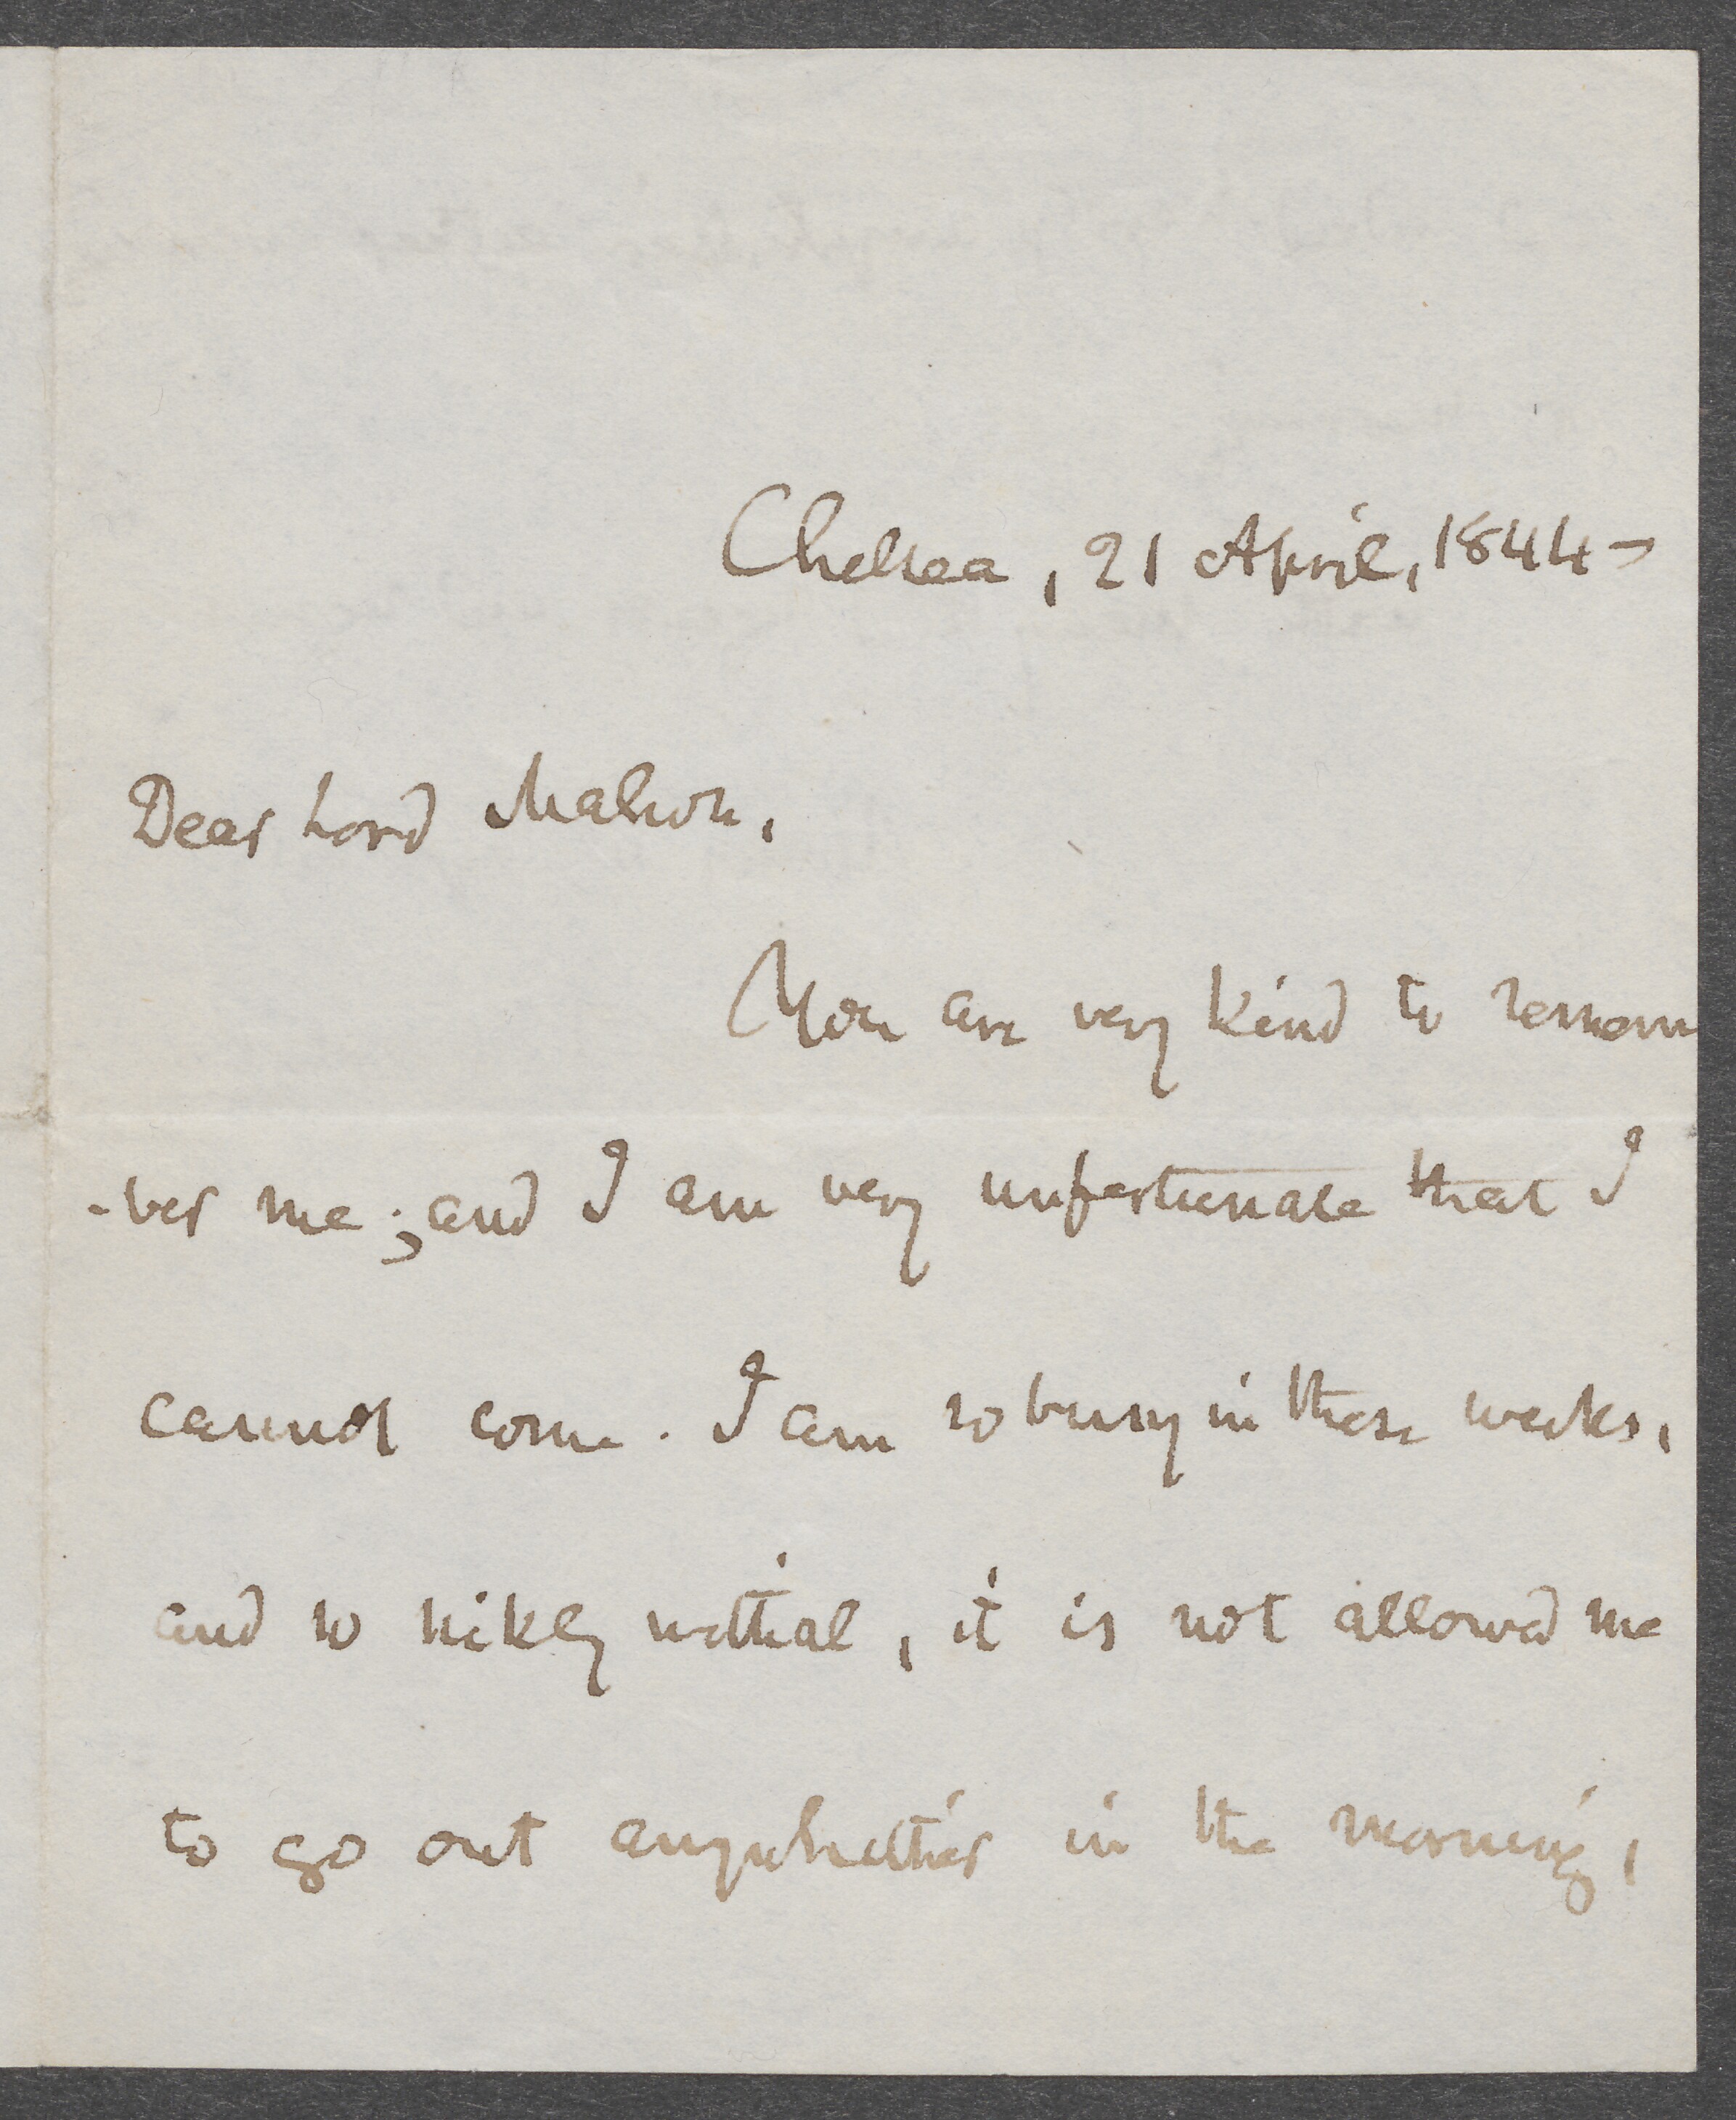 Chelsea, 21 April, 1844 –
Dear Lord Mahon,
You are very kind to remem
-ber me; and I am very unfortunate that I
cannot come. I am so busy in these weeks,
and so sickly withal, it is not allowed me
to go out anywhither in the morning,